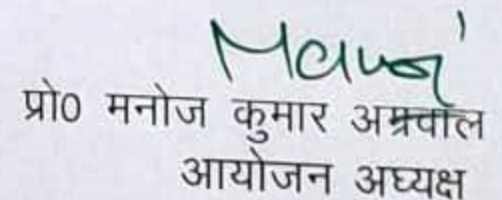 Manoj
प्रो0 मनोज कुमार अग्रवाल
आयोजन अघ्यक्ष